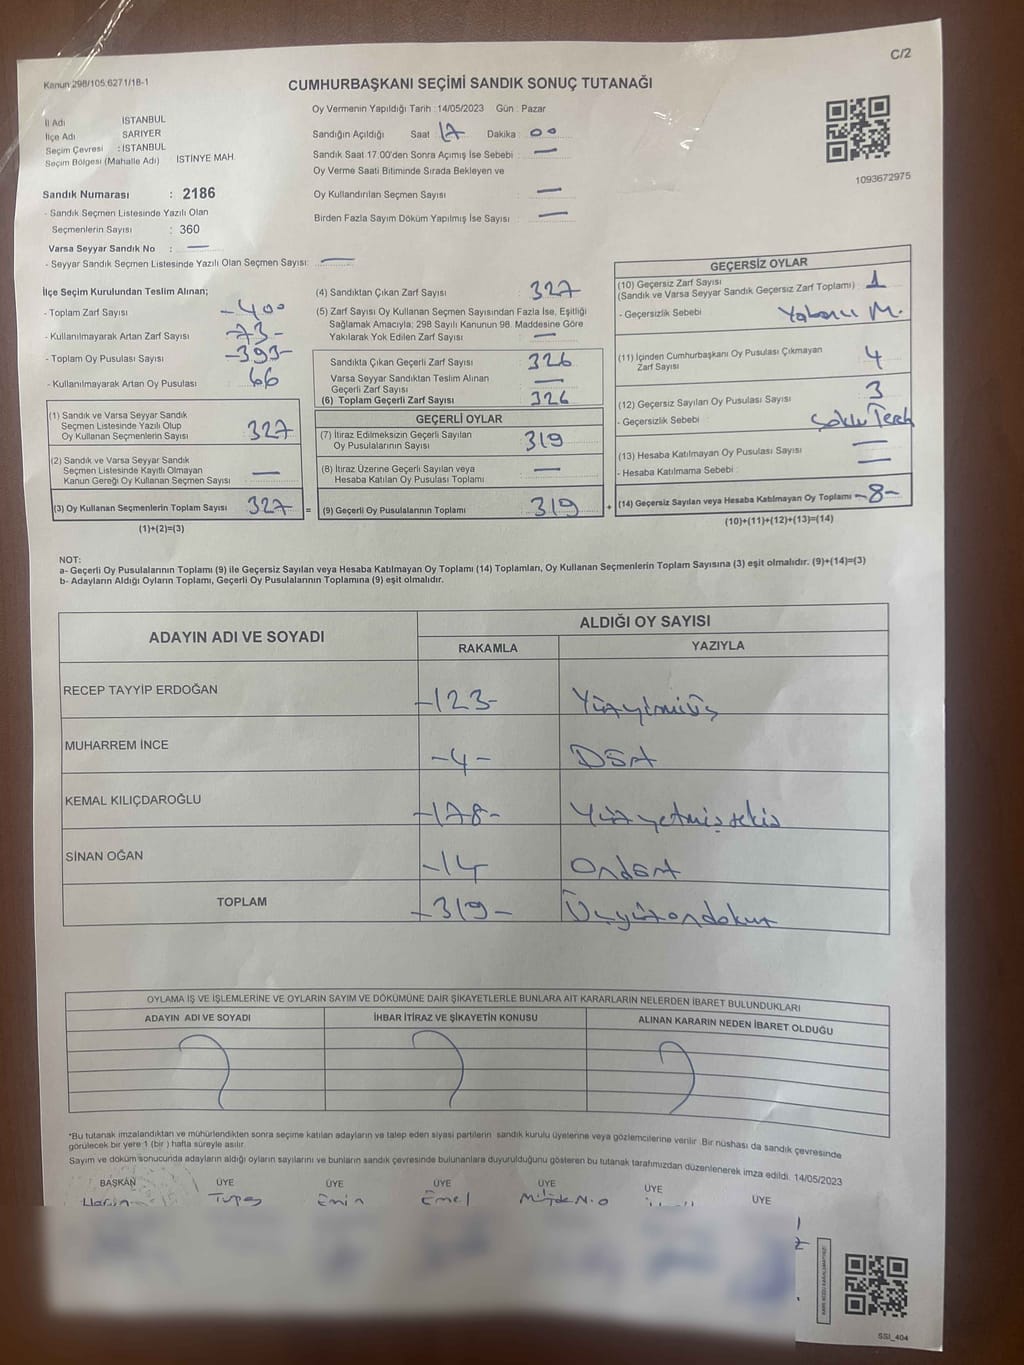 C/2
Kanun 298/105,6271/18-1
CUMHURBAŞKANI SEÇİMİ SANDIK SONUÇ TUTANAĞI
Oy Vermenin Yapıldığı Tarih : 14/05/2023 Gün : Pazar
İl Adı İSTANBUL
İlçe Adı SARIYER
Seçim Çevresi : İSTANBUL
Seçim Bölgesi (Mahalle Adı) İSTİNYE MAH.
Sandığın Açıldığı Saat 17 Dakika 00
Sandık Saat 17.00'den Sonra Açımış İse Sebebi : —
Oy Verme Saati Bitiminde Sırada Bekleyen ve
Oy Kullandırılan Seçmen Sayısı : —
Birden Fazla Sayım Döküm Yapılmış İse Sayısı : —
1093672975
Sandık Numarası : 2186
- Sandık Seçmen Listesinde Yazılı Olan
Seçmenlerin Sayısı : 360
Varsa Seyyar Sandık No : —
- Seyyar Sandık Seçmen Listesinde Yazılı Olan Seçmen Sayısı: —
İlçe Seçim Kurulundan Teslim Alınan;
- Toplam Zarf Sayısı -400
- Kullanılmayarak Artan Zarf Sayısı -73-
- Toplam Oy Pusulası Sayısı -393-
- Kullanılmayarak Artan Oy Pusulası 66
(1) Sandık ve Varsa Seyyar Sandık
Seçmen Listesinde Yazılı Olup
Oy Kullanan Seçmenlerin Sayısı 327
(2) Sandık ve Varsa Seyyar Sandık
Seçmen Listesinde Kayıtlı Olmayan
Kanun Gereği Oy Kullanan Seçmen Sayısı —
(3) Oy Kullanan Seçmenlerin Toplam Sayısı 327
(1)+(2)=(3)
=
(4) Sandıktan Çıkan Zarf Sayısı 327
(5) Zarf Sayısı Oy Kullanan Seçmen Sayısından Fazla İse, Eşitliği
Sağlamak Amacıyla; 298 Sayılı Kanunun 98. Maddesine Göre
Yakılarak Yok Edilen Zarf Sayısı —
Sandıkta Çıkan Geçerli Zarf Sayısı 326
Varsa Seyyar Sandıktan Teslim Alınan
Geçerli Zarf Sayısı —
(6) Toplam Geçerli Zarf Sayısı 326
GEÇERLİ OYLAR
(7) İtiraz Edilmeksizin Geçerli Sayılan
Oy Pusulalarının Sayısı 319
(8) İtiraz Üzerine Geçerli Sayılan veya
Hesaba Katılan Oy Pusulası Toplamı —
(9) Geçerli Oy Pusulalarının Toplamı 319
+
GEÇERSİZ OYLAR
(10) Geçersiz Zarf Sayısı
(Sandık ve Varsa Seyyar Sandık Geçersiz Zarf Toplamı) 1
- Geçersizlik Sebebi Yabancı M.
(11) İçinden Cumhurbaşkanı Oy Pusulası Çıkmayan
Zarf Sayısı 4
(12) Geçersiz Sayılan Oy Pusulası Sayısı 3
- Geçersizlik Sebebi Çoklu Terch
(13) Hesaba Katılmayan Oy Pusulası Sayısı —
- Hesaba Katılmama Sebebi : —
(14) Geçersiz Sayılan veya Hesaba Katılmayan Oy Toplamı -8-
(10)+(11)+(12)+(13)=(14)
NOT:
a- Geçerli Oy Pusulalarının Toplamı (9) ile Geçersiz Sayılan veya Hesaba Katılmayan Oy Toplamı (14) Toplamları, Oy Kullanan Seçmenlerin Toplam Sayısına (3) eşit olmalıdır. (9)+(14)=(3)
b- Adayların Aldığı Oyların Toplamı, Geçerli Oy Pusulalarının Toplamına (9) eşit olmalıdır.
ADAYIN ADI VE SOYADI ALDIĞI OY SAYISI
RAKAMLA YAZIYLA
RECEP TAYYİP ERDOĞAN -123- Yüzyirmiüç
MUHARREM İNCE -4- Dört
KEMAL KILIÇDAROĞLU -178- Yüzyetmişsekiz
SİNAN OĞAN -14 Ondört
TOPLAM -319- Üçyüzondokuz
OYLAMA İŞ VE İŞLEMLERİNE VE OYLARIN SAYIM VE DÖKÜMÜNE DAİR ŞİKAYETLERLE BUNLARA AİT KARARLARIN NELERDEN İBARET BULUNDUKLARI
ADAYIN ADI VE SOYADI İHBAR İTİRAZ VE ŞİKAYETİN KONUSU ALINAN KARARIN NEDEN İBARET OLDUĞU
*Bu tutanak imzalandıktan ve mühürlendikten sonra seçime katılan adayların ve talep eden siyasi partilerin sandık kurulu üyelerine veya gözlemcilerine verilir. Bir nüshası da sandık çevresinde
görülecek bir yere 1 (bir ) hafta süreyle asılır.
Sayım ve döküm sonucunda adayların aldığı oyların sayılarını ve bunların sandık çevresinde bulunanlara duyurulduğunu gösteren bu tutanak tarafımızdan düzenlenerek imza edildi. 14/05/2023
BAŞKAN ÜYE ÜYE ÜYE ÜYE ÜYE ÜYE
Emin Emel Müjde N.O
SSİ_404